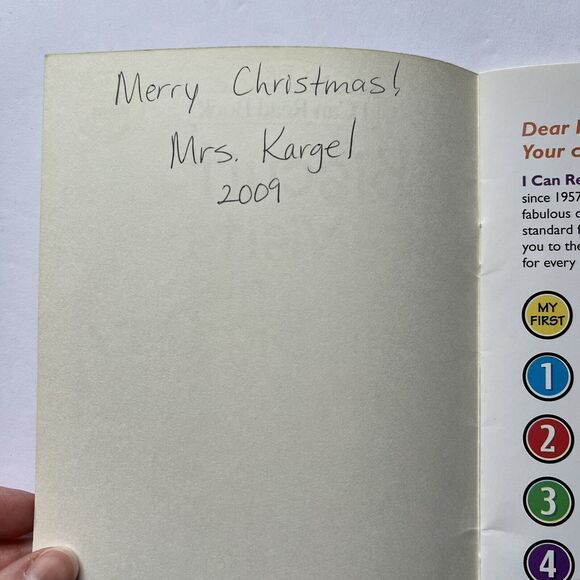 Merry Christmas!
Mrs. Kargel
2009
Dear
Your
I Can
since 1957
fabulous
standard
you to the
for every
MY
FIRST
1
2
3
4